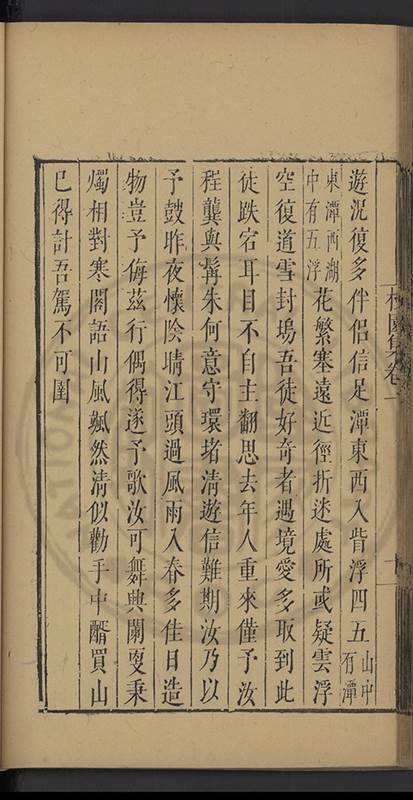 遊況復多伴侶信足潭東西入眥浮四五山中有潭
東潭西湖中有五浮花繁塞遠近徑折迷處所或疑雲浮
空復道雪封塢吾徒好奇者遇境愛多取到此
徒跌宕耳目不自主翻思去年人重來僅予汝
程龔與髯朱何意守環堵清遊信難期汝乃以
予鼓昨夜懷陰晴江頭過風雨入春多佳日造
物豈予侮茲行偶得遂予歌汝可舞興闌更秉
燭相對寒閣語山風颯然清似勸手中醑買山
已得計吾駕不可圉